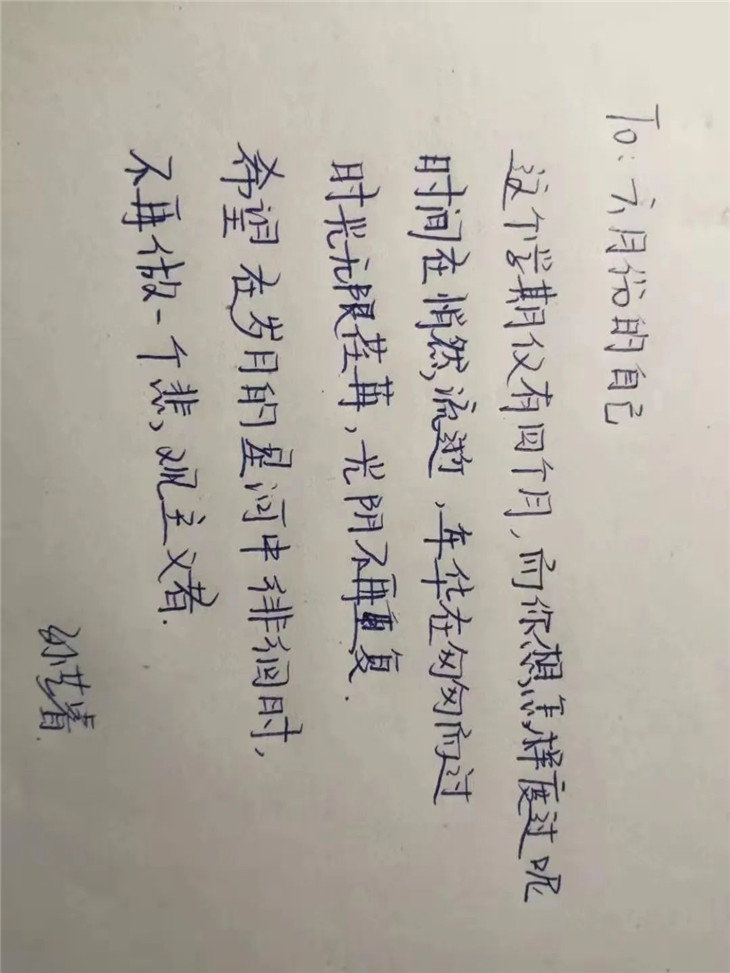 To: 六月份的自己
这个学期仅有四个月，而你想怎样度过呢
时间在悄然流逝，年华在匆匆而过
时光无限荏苒，光阴不再重复.
希望在岁月的星河中徘徊时，
不再做一个悲观主义者.